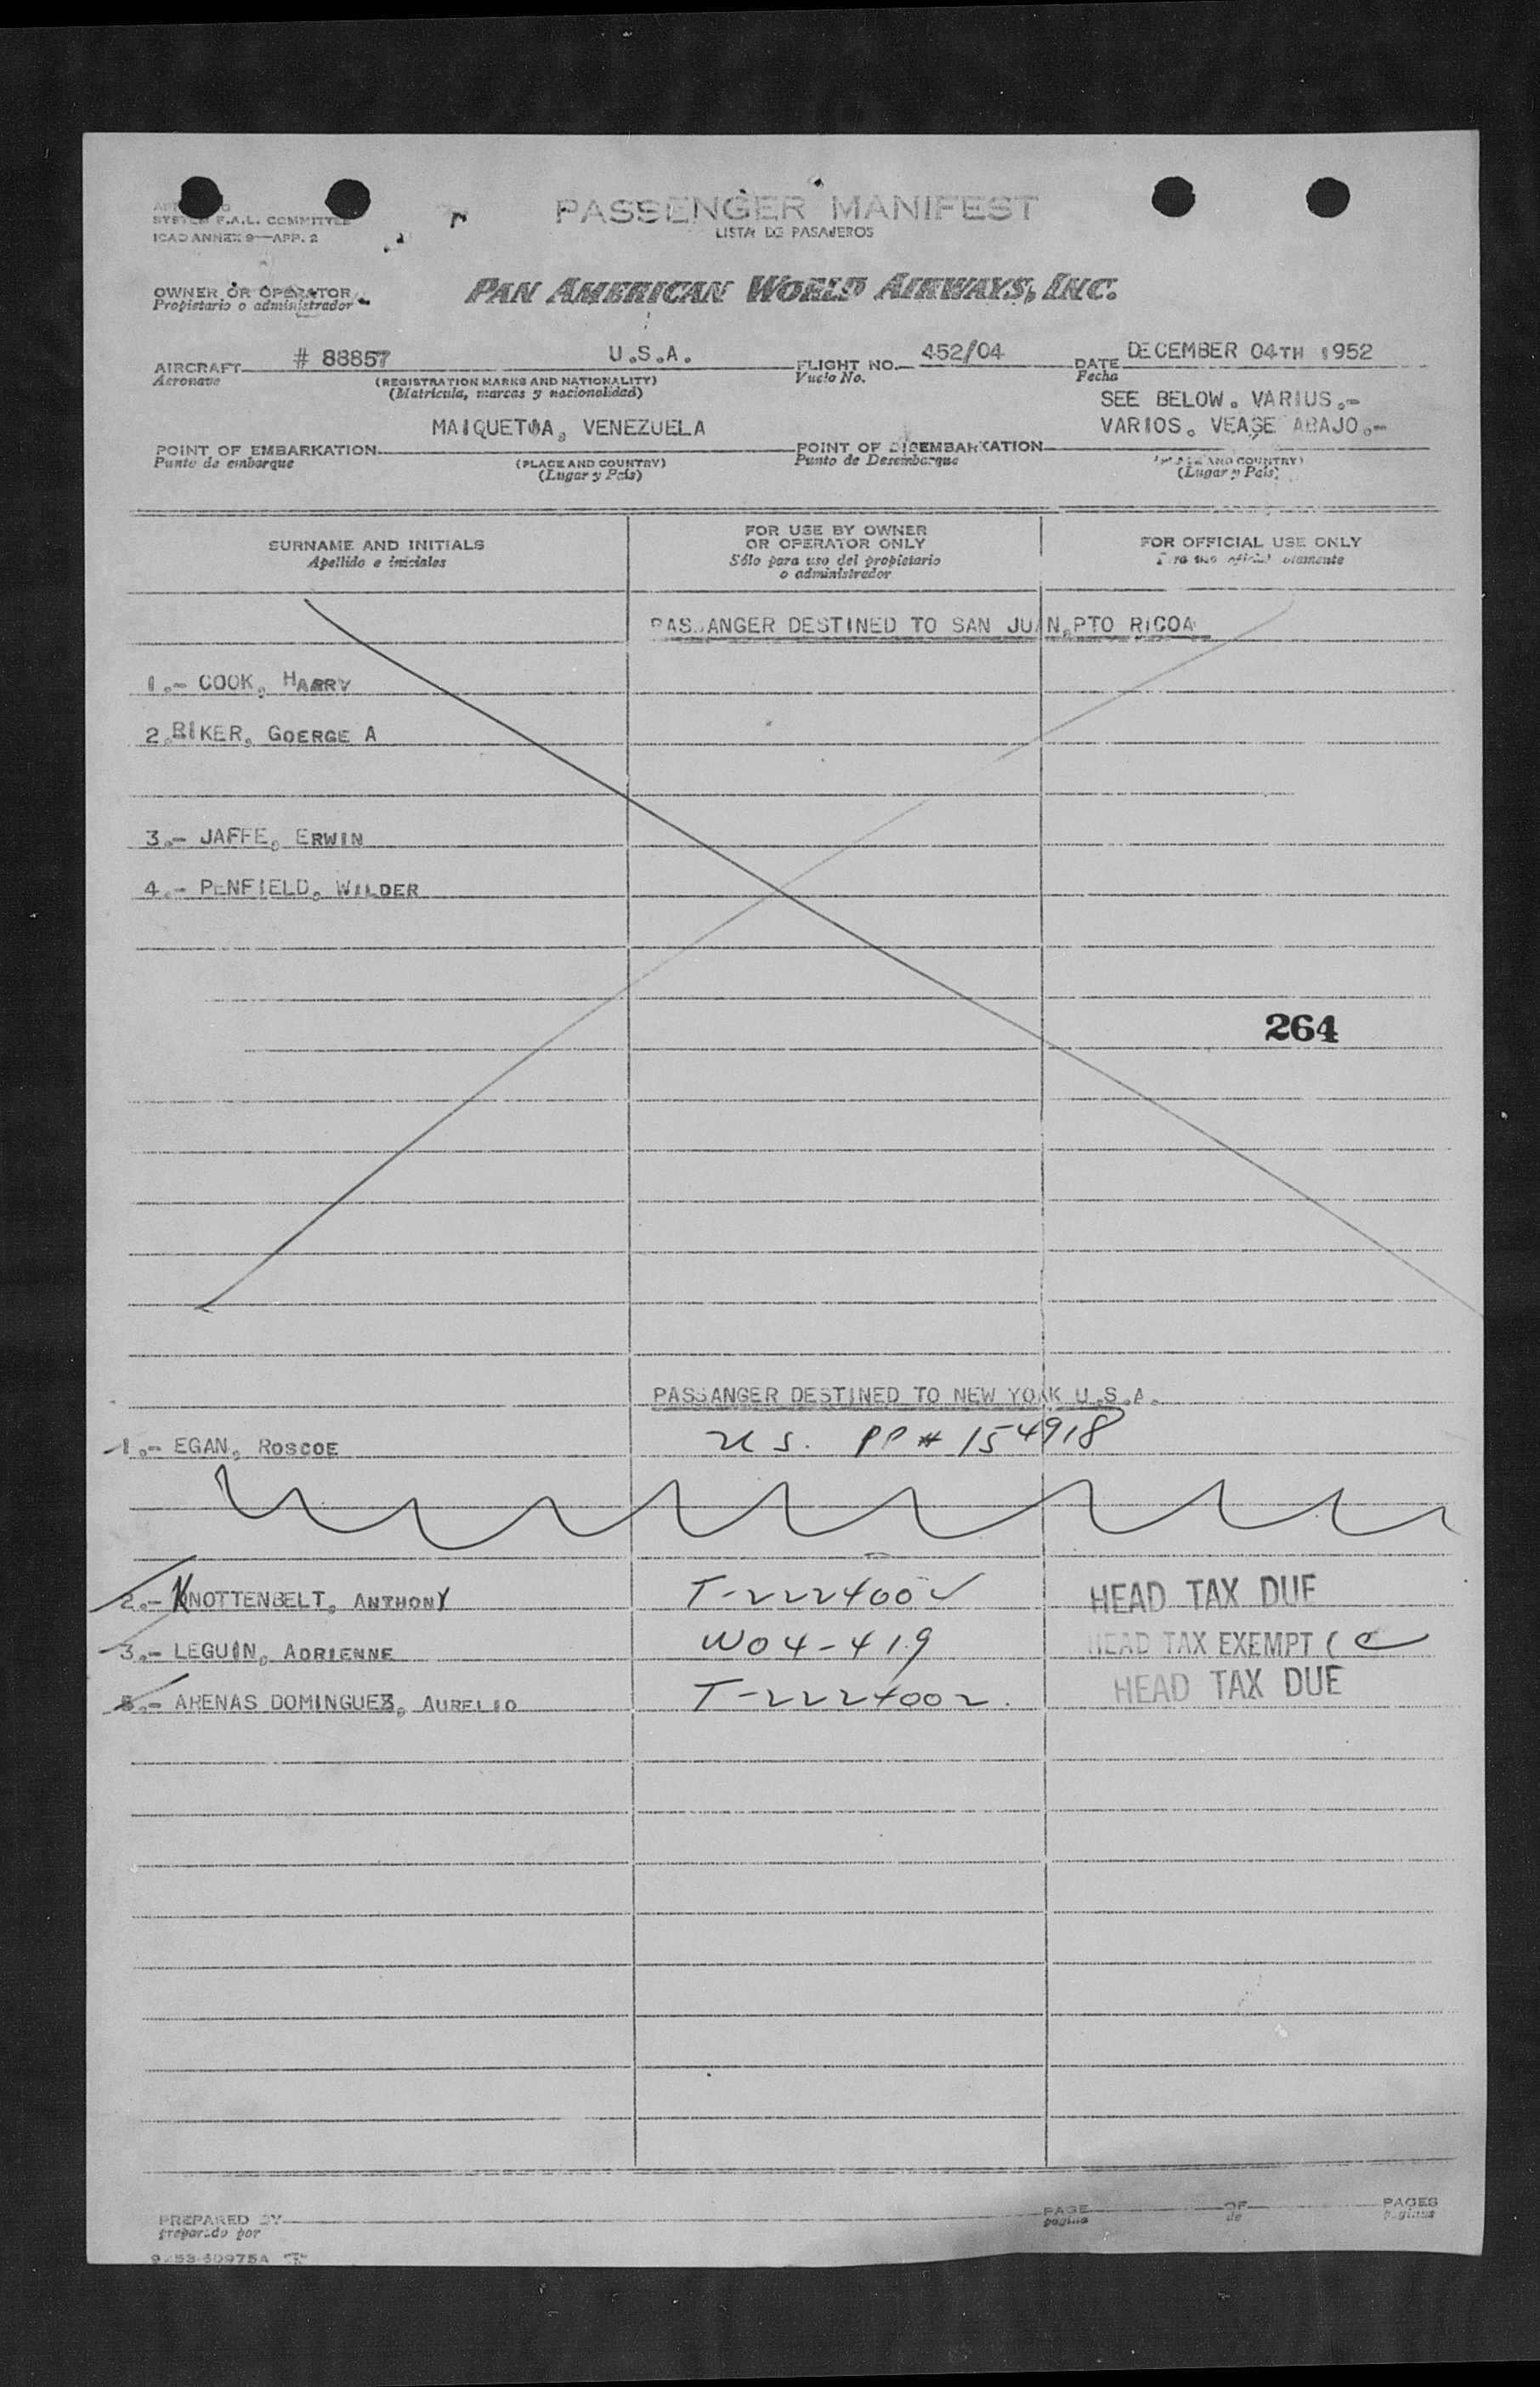 SYSTEM F.A.L. COMMITTEE
ICAO ANNEX 9—APP. 2
PASSENGER MANIFEST
LISTA DE PASAJEROS
OWNER OR OPERATOR
Propietario o administrador
PAN AMERICAN WORLD AIRWAYS, INC.
AIRCRAFT # 88857 U.S.A. FLIGHT NO. 452/04 DATE DECEMBER 04TH 1952
Aeronave (REGISTRATION MARKS AND NATIONALITY) Vuelo No. Fecha
(Matrícula, marcas y nacionalidad)
SEE BELOW. VARIUS.-
MAIQUETIA, VENEZUELA VARIOS. VEASE ABAJO.-
POINT OF EMBARKATION POINT OF DISEMBARKATION
Punto de embarque (PLACE AND COUNTRY) Punto de Desembarque (PLACE AND COUNTRY)
(Lugar y País) (Lugar y País)
SURNAME AND INITIALS
Apellido e iniciales
FOR USE BY OWNER
OR OPERATOR ONLY
Sólo para uso del propietario
o administrador
FOR OFFICIAL USE ONLY
Para uso oficial solamente
PASSANGER DESTINED TO SAN JUAN,PTO RICOA
1.- COOK, HARRY
2.RIKER, GOERGE A
3.- JAFFE, ERWIN
4.- PENFIELD, WILDER
264
PASSANGER DESTINED TO NEW YORK U.S.A.
1.- EGAN, ROSCOE US. PP # 154918
2.- KNOTTENBELT, ANTHONY T-222400 HEAD TAX DUE
3.- LEGUIN, ADRIENNE W04-419 HEAD TAX EXEMPT (C
- ARENAS DOMINGUEZ, AURELIO T-2224002. HEAD TAX DUE
PREPARED BY PAGE OF PAGES
preparado por página de páginas